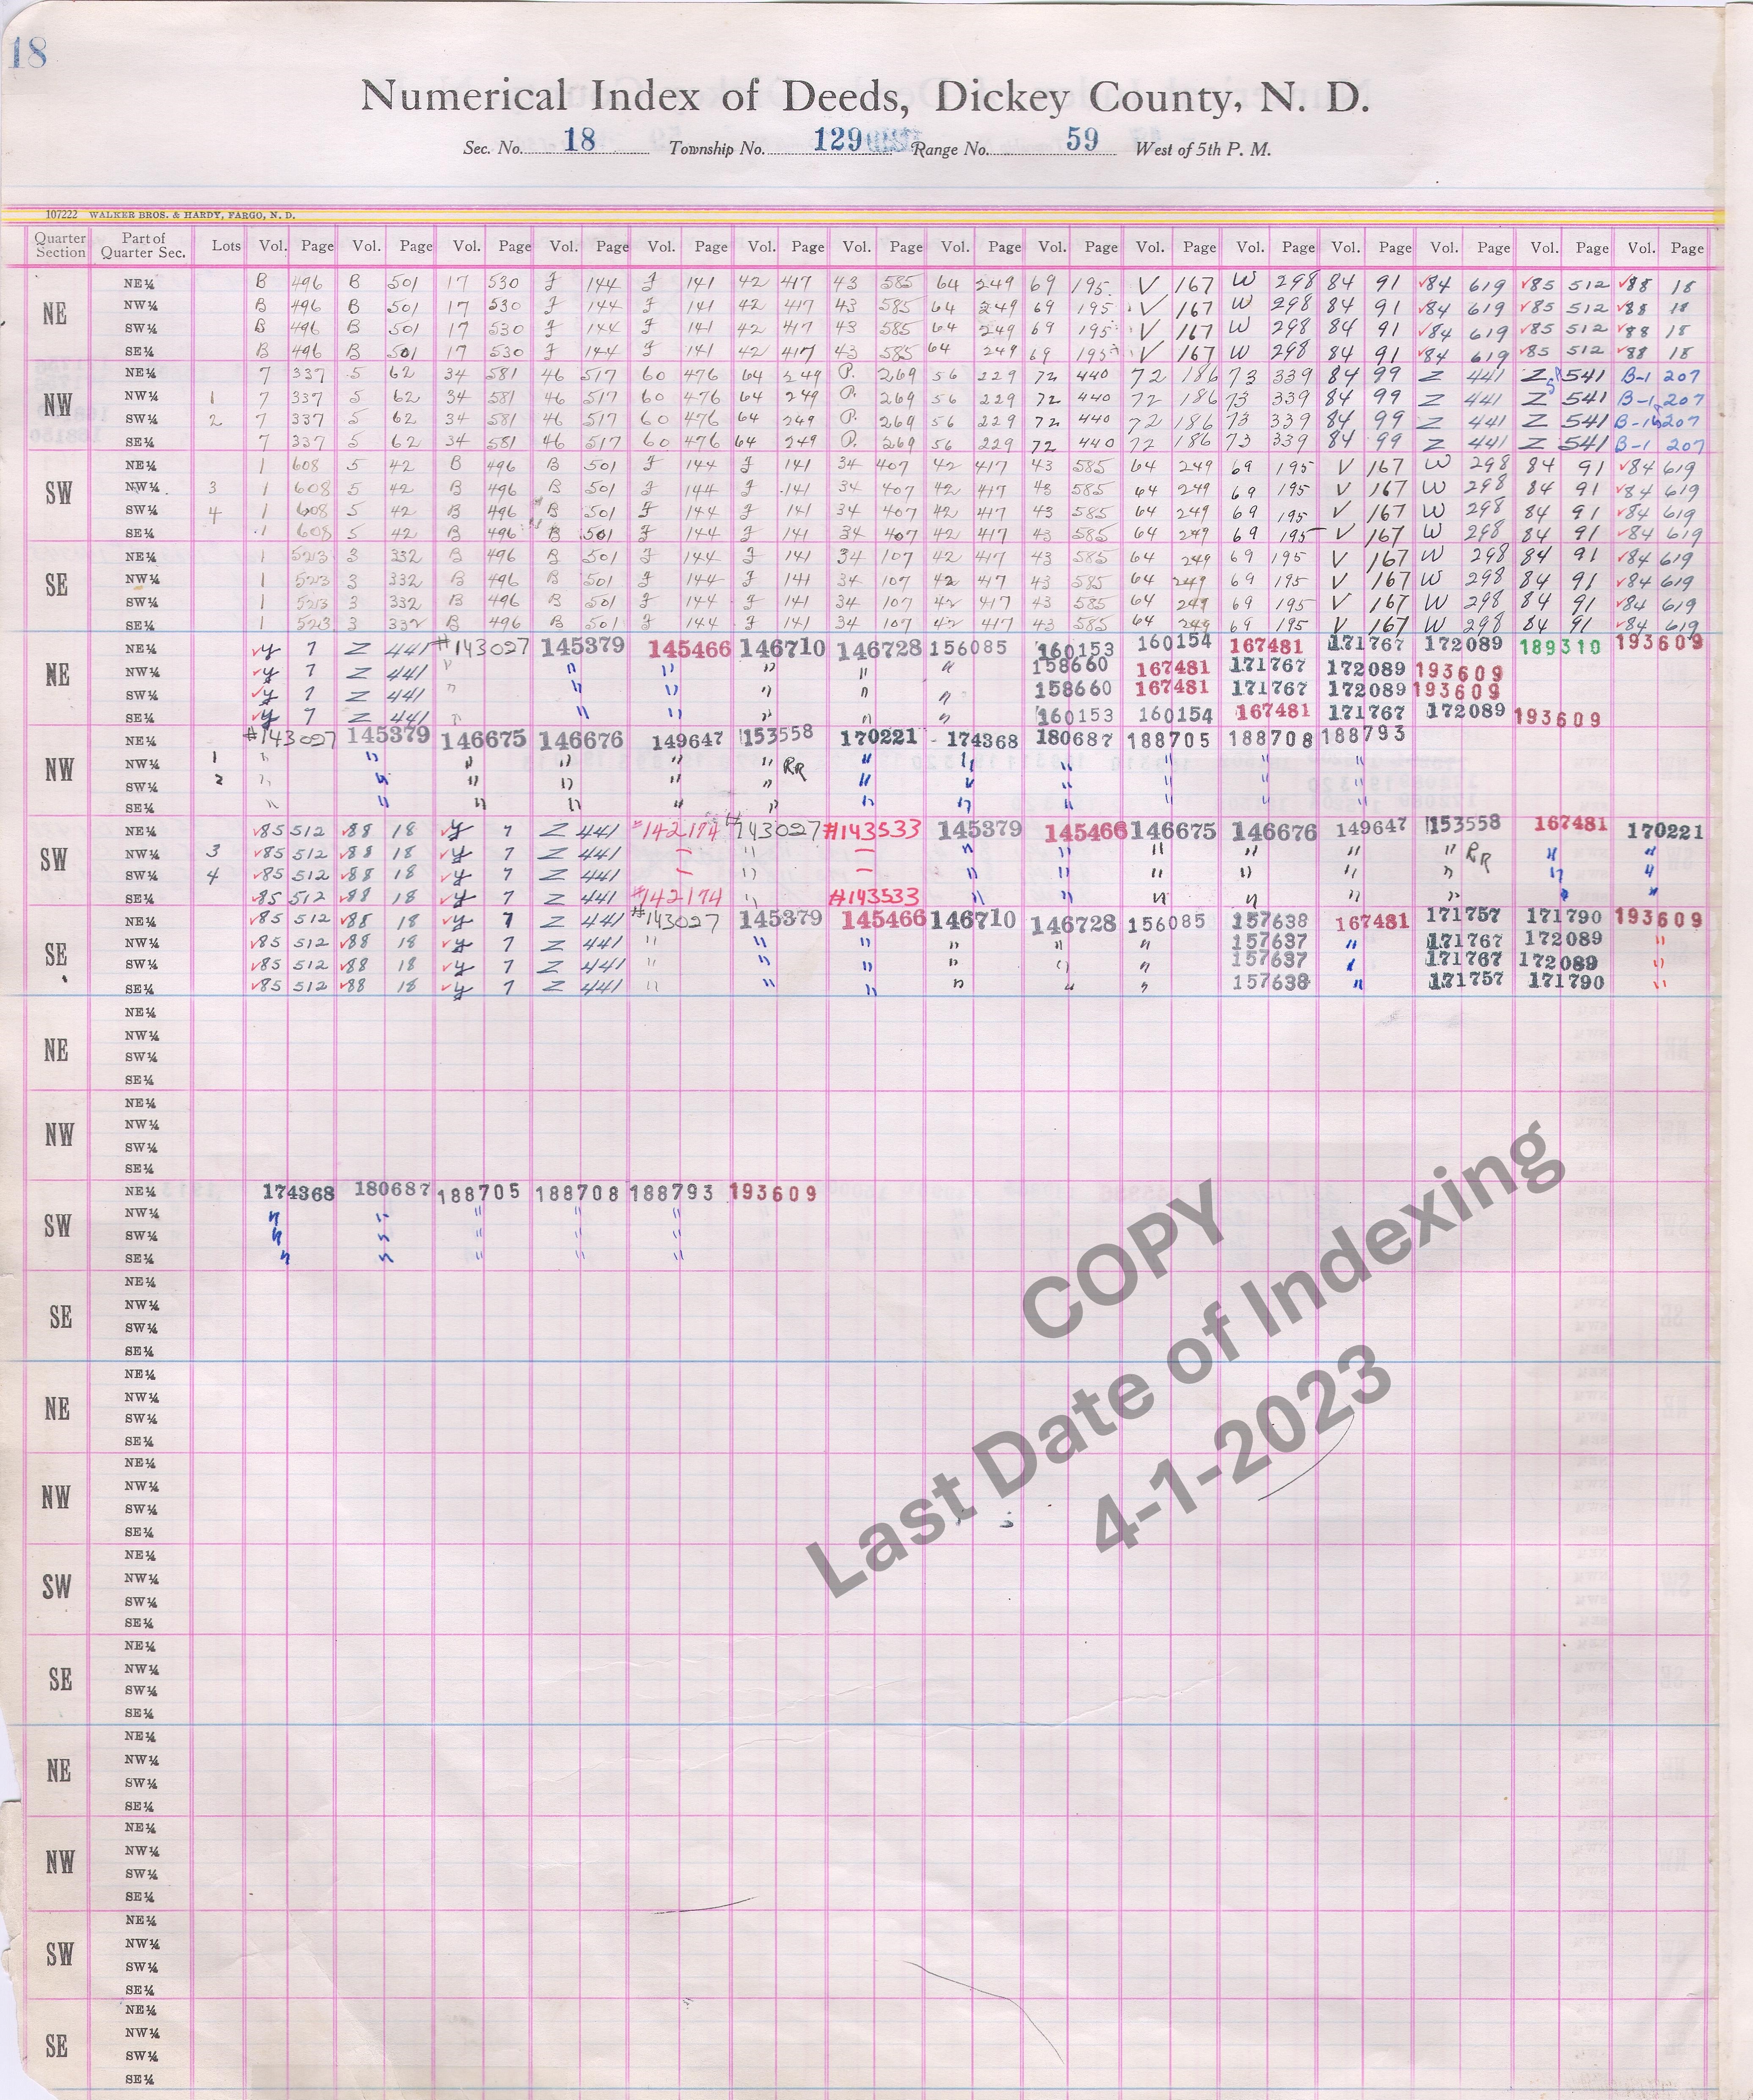 18
Numerical Index of Deeds, Dickey County, N. D.
Sec. No. 18 Township No. 129 Range No. 59 West of 5th P. M.
107222 WALKER BROS. & HARDY, FARGO, N. D.
Quarter Section Part of Quarter Sec. Lots Vol. Page Vol. Page Vol. Page Vol. Page Vol. Page Vol. Page Vol. Page Vol. Page Vol. Page Vol. Page Vol. Page Vol. Page Vol. Page Vol. Page Vol. Page
NE
NE¼ B 496 B 501 17 530 J 144 J 141 42 417 43 585 64 249 69 195 V 167 W 298 84 91 ✓84 619 ✓85 512 ✓88 18
NW¼ B 496 B 501 17 530 J 144 J 141 42 417 43 585 64 249 69 195 V 167 W 298 84 91 ✓84 619 ✓85 512 ✓88 18
SW¼ B 496 B 501 17 530 J 144 J 141 42 417 43 585 64 249 69 195 V 167 W 298 84 91 ✓84 619 ✓85 512 ✓88 18
SE¼ B 496 B 501 17 530 J 144 J 141 42 417 43 585 64 249 69 195 V 167 W 298 84 91 ✓84 619 ✓85 512 ✓88 18
NW
NE¼ 7 337 5 62 34 581 46 517 60 476 64 249 P. 269 56 229 72 440 72 186 73 339 84 99 Z 441 Z 541 B-1 207
NW¼ 1 7 337 5 62 34 581 46 517 60 476 64 249 P. 269 56 229 72 440 72 186 73 339 84 99 Z 441 Z 541 B-1 207
SW¼ 2 7 337 5 62 34 581 46 517 60 476 64 249 P. 269 56 229 72 440 72 186 73 339 84 99 Z 441 Z 541 B-1 207
SE¼ 7 337 5 62 34 581 46 517 60 476 64 249 P. 269 56 229 72 440 72 186 73 339 84 99 Z 441 Z 541 B-1 207
SW
NE¼ 1 608 5 42 B 496 B 501 J 144 J 141 34 407 42 417 43 585 64 249 69 195 V 167 W 298 84 91 ✓84 619
NW¼ 3 1 608 5 42 B 496 B 501 J 144 J 141 34 407 42 417 43 585 64 249 69 195 V 167 W 298 84 91 ✓84 619
SW¼ 4 1 608 5 42 B 496 B 501 J 144 J 141 34 407 42 417 43 585 64 249 69 195 V 167 W 298 84 91 ✓84 619
SE¼ 1 608 5 42 B 496 B 501 J 144 J 141 34 407 42 417 43 585 64 249 69 195 V 167 W 298 84 91 ✓84 619
SE
NE¼ 1 3 332 B 496 B 501 J 144 J 141 34 107 42 417 43 585 64 249 69 195 V 167 W 298 84 91 ✓84 619
NW¼ 1 3 332 B 496 B 501 J 144 J 141 34 107 42 417 43 585 64 249 69 195 V 167 W 298 84 91 ✓84 619
SW¼ 1 3 332 B 496 B 501 J 144 J 141 34 107 42 417 43 585 64 249 69 195 V 167 W 298 84 91 ✓84 619
SE¼ 1 3 332 B 496 B 501 J 144 J 141 34 107 42 417 43 585 64 249 69 195 V 167 W 298 84 91 ✓84 619
NE
NE¼ ✓y 7 Z 441 #143027 145379 145466 146710 146728 156085 160153 160154 167481 171767 172089 189310 193609
NW¼ ✓y 7 Z 441 " " " " " " 158660 167481 171767 172089 193609
SW¼ ✓y 7 Z 441 " " " " " " 158660 167481 171767 172089 193609
SE¼ ✓y 7 Z 441 " " " " " " 160153 160154 167481 171767 172089 193609
NW
NE¼ #143027 145379 146675 146676 149647 153558 170221 174368 180687 188705 188708 188793
NW¼ 1 " " " " " " RR " " " " " "
SW¼ 2 " " " " " " " " " " " "
SE¼ " " " " " " " " " " " "
SW
NE¼ ✓85 512 ✓88 18 ✓y 7 Z 441 #142174 #143027 #143533 145379 145466 146675 146676 149647 153558 167481 170221
NW¼ 3 ✓85 512 ✓88 18 ✓y 7 Z 441 — " — " " " " " " RR " "
SW¼ 4 ✓85 512 ✓88 18 ✓y 7 Z 441 — " — " " " " " " " "
SE¼ ✓85 512 ✓88 18 ✓y 7 Z 441 #142174 " #143533 " " " " " " " "
SE
NE¼ ✓85 512 ✓88 18 ✓y 7 Z 441 #143027 145379 145466 146710 146728 156085 157638 167481 171757 171790 193609
NW¼ ✓85 512 ✓88 18 ✓y 7 Z 441 " " " " " " 157637 " 171767 172089 "
SW¼ ✓85 512 ✓88 18 ✓y 7 Z 441 " " " " " " 157637 " 171767 172089 "
SE¼ ✓85 512 ✓88 18 ✓y 7 Z 441 " " " " " " 157638 " 171757 171790 "
NE
NE¼
NW¼
SW¼
SE¼
NW
NE¼
NW¼
SW¼
SE¼
SW
NE¼ 174368 180687 188705 188708 188793 193609
NW¼ " " " " "
SW¼ " " " " "
SE¼ " " " " "
SE
NE¼
NW¼
SW¼
SE¼
NE
NE¼
NW¼
SW¼
SE¼
NW
NE¼
NW¼
SW¼
SE¼
SW
NE¼
NW¼
SW¼
SE¼
SE
NE¼
NW¼
SW¼
SE¼
NE
NE¼
NW¼
SW¼
SE¼
NW
NE¼
NW¼
SW¼
SE¼
SW
NE¼
NW¼
SW¼
SE¼
SE
NE¼
NW¼
SW¼
SE¼
COPY
Last Date of Indexing
4-1-2023